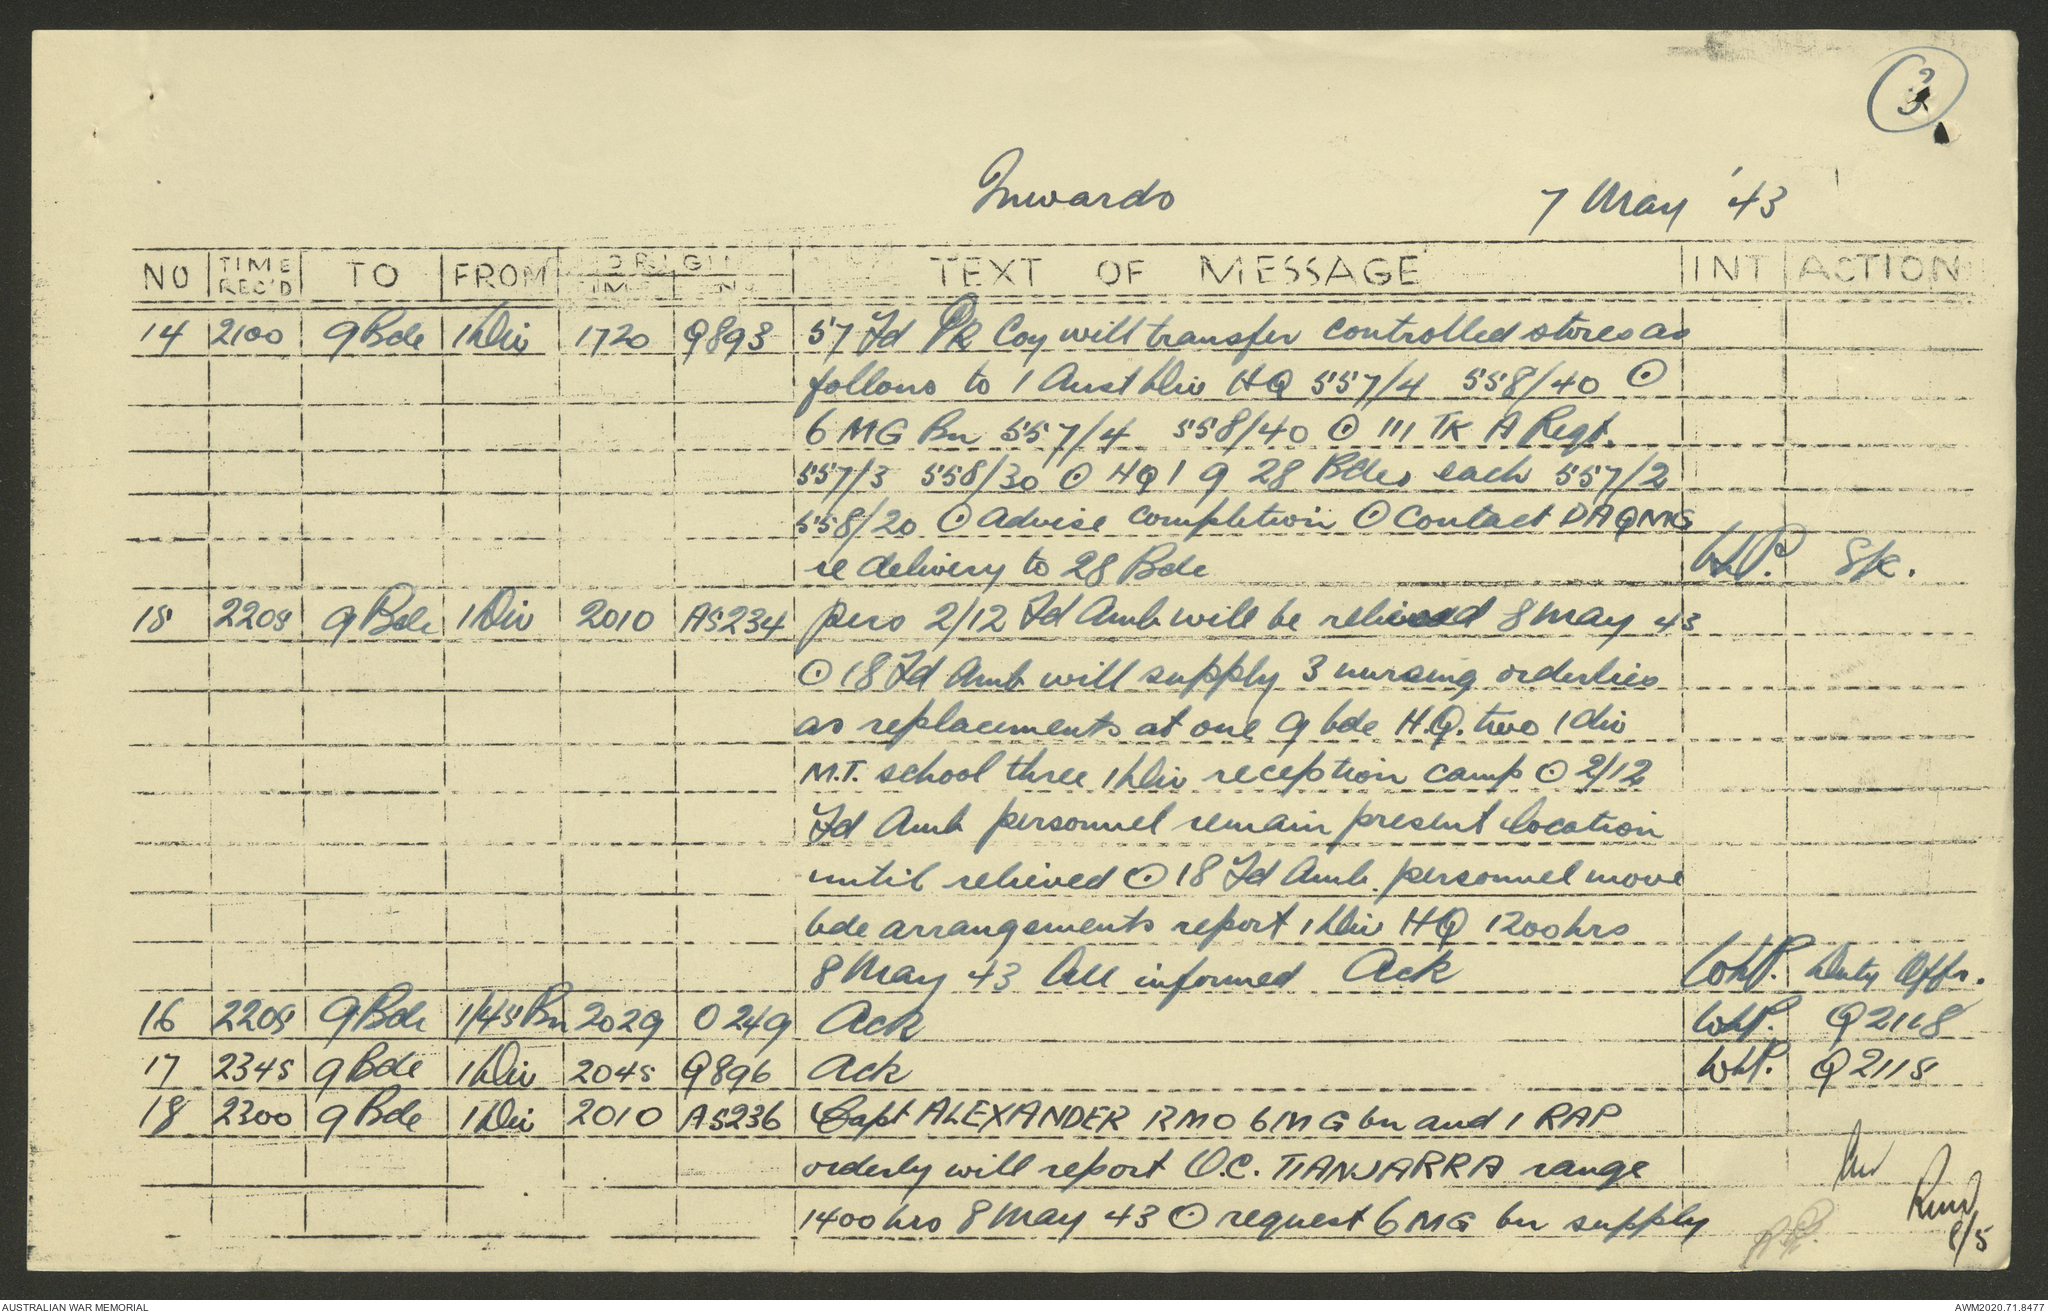 3
Inwards 7 May '43
NO | TIME REC'D | TO | FROM | ORIGIN TIME N | TEXT OF MESSAGE | INT | ACTION
14 | 2100 | 9 Bde | 1 Div | 1720 | Q893 | 57 Fd Pk Coy will transfer controlled stores as
follows to 1 Aust Div HQ 557/4 558/40 ⊙
6 MG Bn 557/4 558/40 ⊙ 111 TK A Regt.
557/3 558/30 ⊙ HQ 1 9 28 Bdes each 557/2
558/20 ⊙ Advise completion ⊙ Contact DAQMG
re delivery to 28 Bde | WHP. | SK.
15 | 2205 | 9 Bde | 1 Div | 2010 | AS234 | pers 2/12 Fd Amb will be relieved 8 May 43
⊙ 18 Fd Amb will supply 3 nursing orderlies
as replacements at one 9 bde H.Q. two 1 div
M.T. school three 1 Div reception camp ⊙ 2/12
Fd Amb personnel remain present location
until relieved ⊙ 18 Fd Amb. personnel move
bde arrangements report 1 Div HQ 1200 hrs
8 May 43 All informed Ack | WHP. | Duty Offr.
16 | 2205 | 9 Bde | 1/45 Bn | 2029 | O249 | Ack | WHP. | Q2118
17 | 2345 | 9 Bde | 1 Div | 2045 | Q896 | Ack | WHP. | Q2118
18 | 2300 | 9 Bde | 1 Div | 2010 | AS236 | Capt ALEXANDER RMO 6 MG bn and 1 RAP
orderly will report O.C. TIANJARRA range
1400 hrs 8 May 43 ⊙ request 6 MG bn supply
8/5
AUSTRALIAN WAR MEMORIAL AWM2020.71.8477